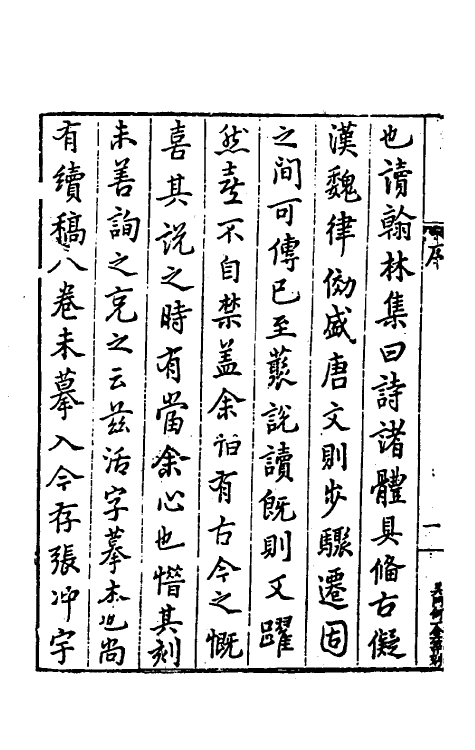 也讀翰林集曰詩諸體具脩古儗
漢魏律傚盛唐文則步驟遷固
之間可傳已至蓺說讀旣則又躍
然喜不自禁盖余怕有古今之慨
喜其説之時有當余心也惜其刻
未善詢之克之云茲活字摹本也尚
有續稿八卷未摹入今存張冲宇
序
一